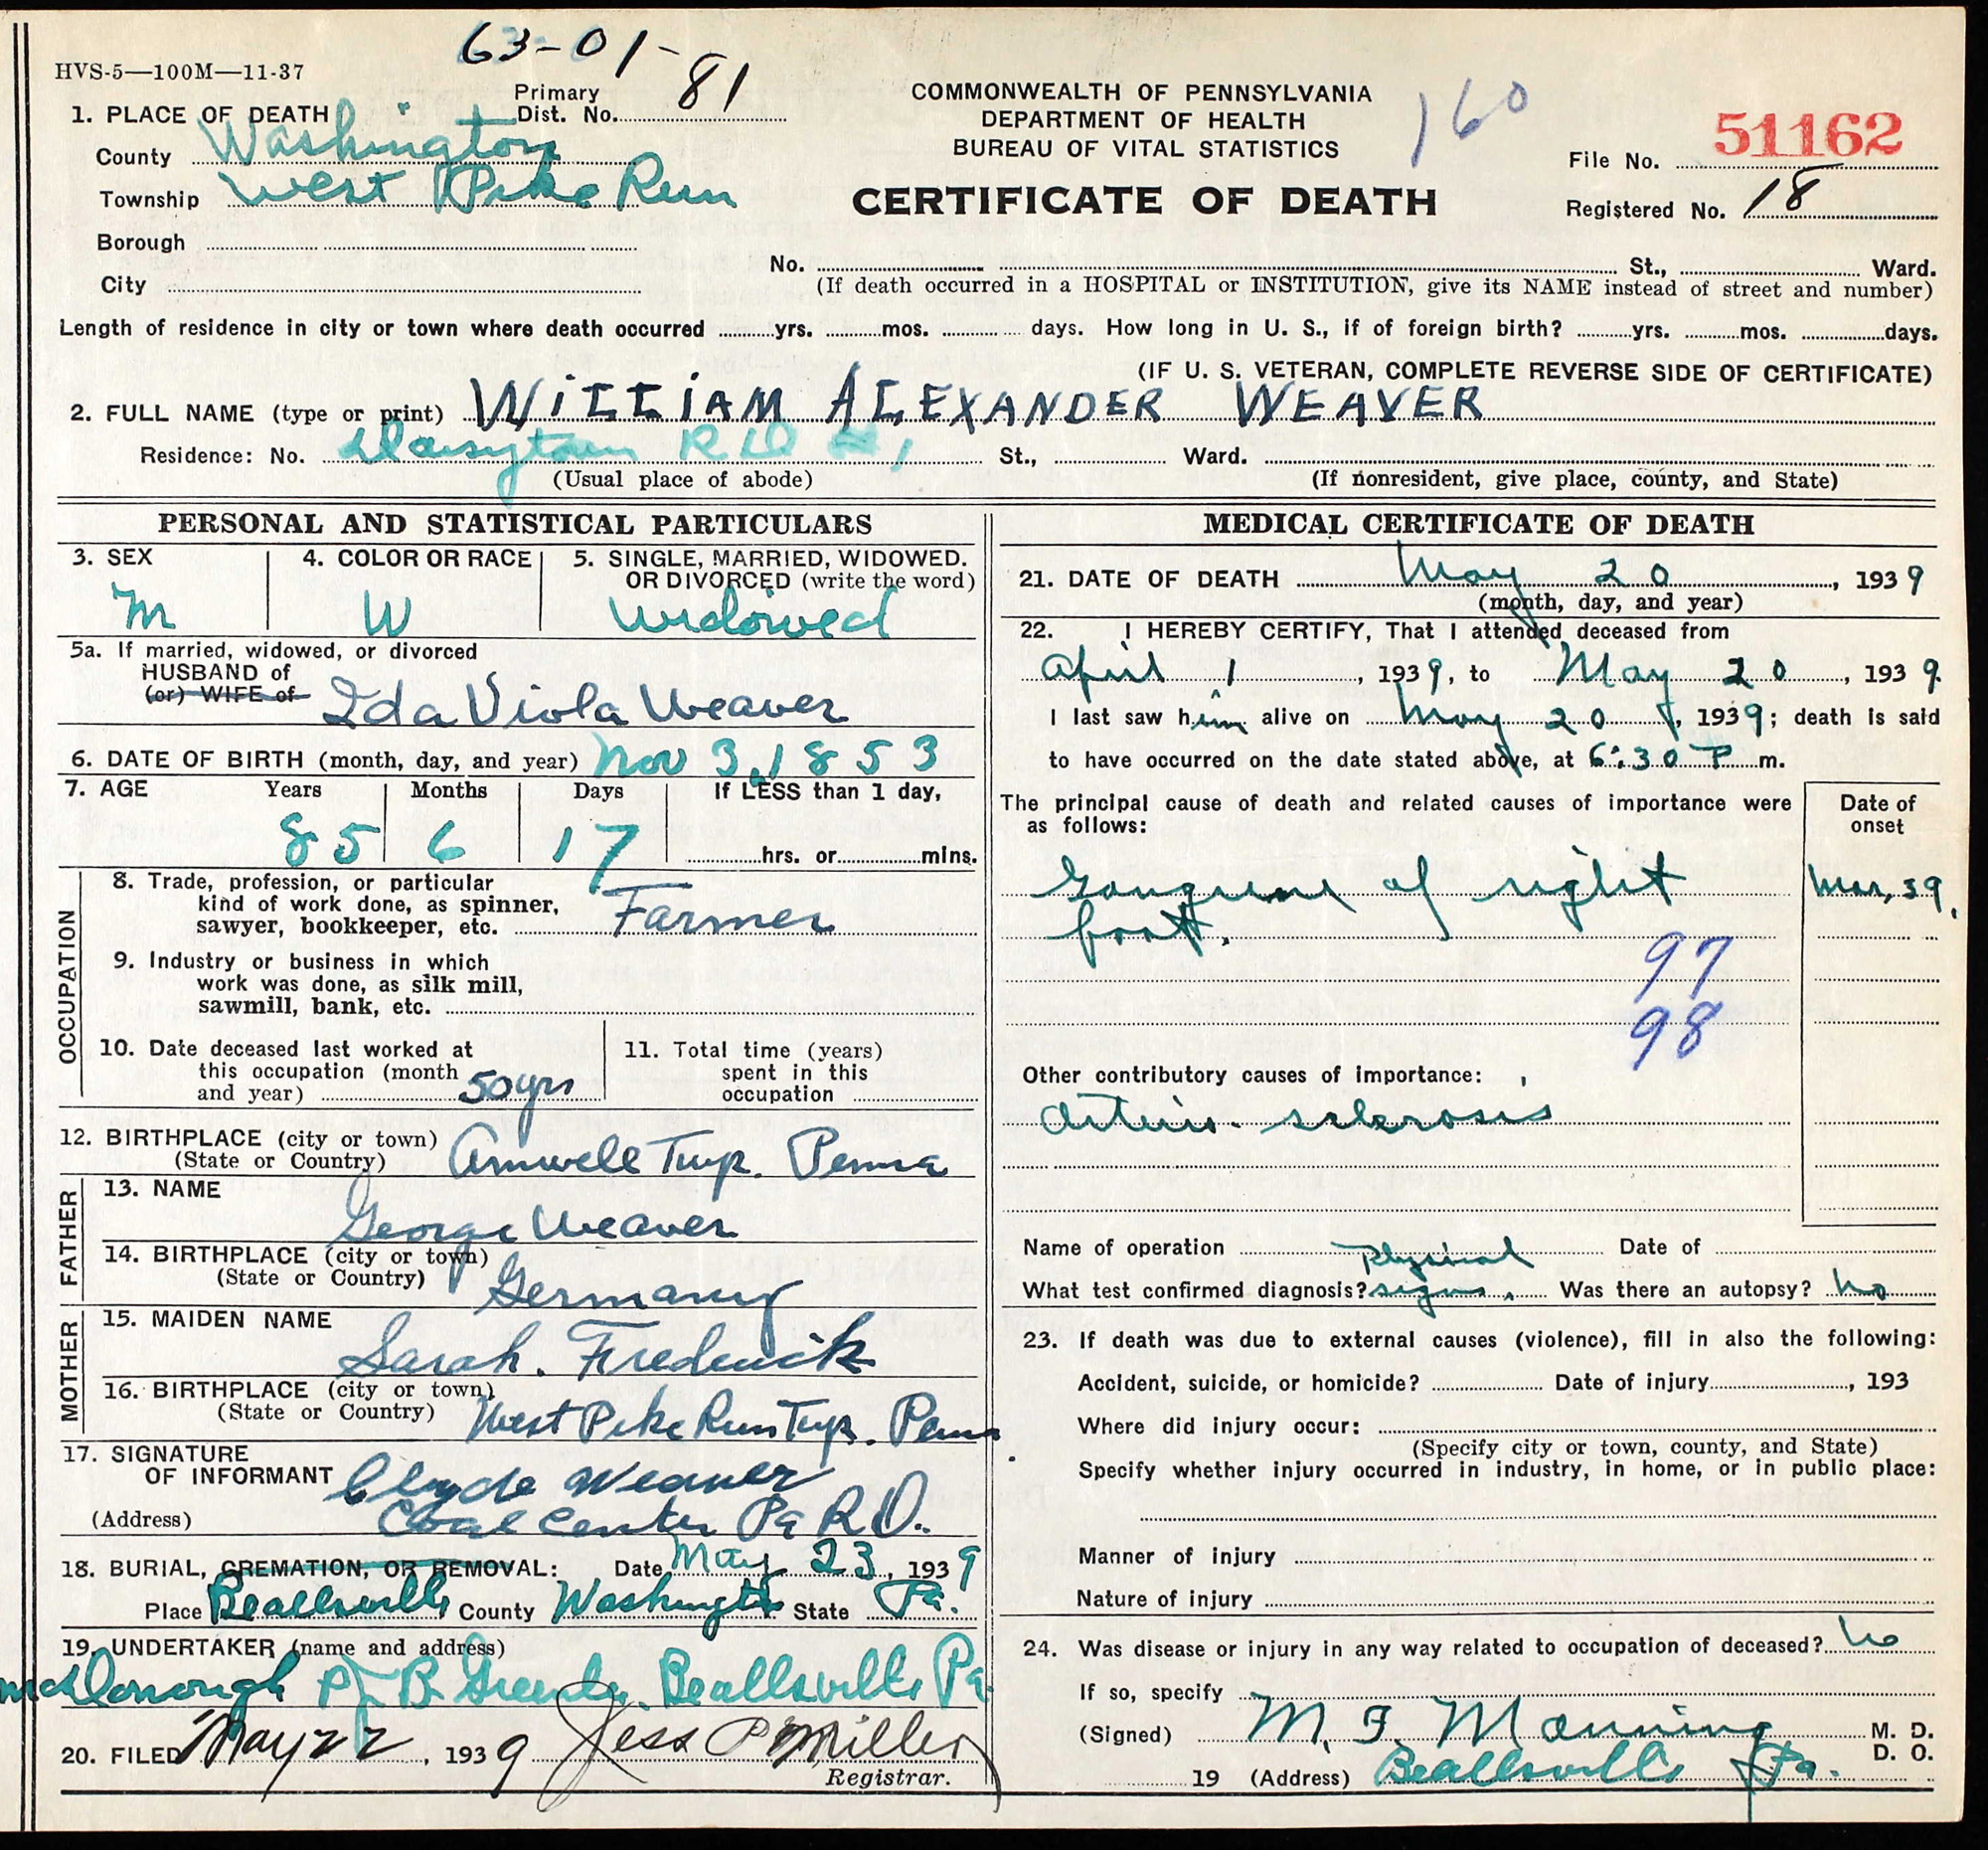 63-01-81
HVS-5—100M—11-37
Primary
Dist. No. 81
COMMONWEALTH OF PENNSYLVANIA
DEPARTMENT OF HEALTH
BUREAU OF VITAL STATISTICS
CERTIFICATE OF DEATH
160
File No. 51162
Registered No. 18
1. PLACE OF DEATH
County Washington
Township West Pike Run
Borough
City
No. St., Ward.
(If death occurred in a HOSPITAL or INSTITUTION, give its NAME instead of street and number)
Length of residence in city or town where death occurred yrs. mos. days. How long in U. S., if of foreign birth? yrs. mos. days.
(IF U. S. VETERAN, COMPLETE REVERSE SIDE OF CERTIFICATE)
2. FULL NAME (type or print) WiLLiAM ALEXANDER WEAVER
Residence: No. Daisytown R D 1 St., Ward.
(Usual place of abode) (If nonresident, give place, county, and State)
PERSONAL AND STATISTICAL PARTICULARS
3. SEX 4. COLOR OR RACE 5. SINGLE, MARRIED, WIDOWED.
OR DIVORCED (write the word)
M W Widowed
5a. If married, widowed, or divorced
HUSBAND of
(or) WIFE of Ida Viola Weaver
6. DATE OF BIRTH (month, day, and year) Nov 3, 1853
7. AGE Years Months Days If LESS than 1 day,
85 6 17 hrs. or mins.
OCCUPATION
8. Trade, profession, or particular
kind of work done, as spinner,
sawyer, bookkeeper, etc. Farmer
9. Industry or business in which
work was done, as silk mill,
sawmill, bank, etc.
10. Date deceased last worked at
this occupation (month
and year) 50 yrs
11. Total time (years)
spent in this
occupation
12. BIRTHPLACE (city or town) Amwell Twp. Penna
(State or Country)
FATHER
13. NAME
George Weaver
14. BIRTHPLACE (city or town)
(State or Country) Germany
MOTHER
15. MAIDEN NAME
Sarah. Frederick
16. BIRTHPLACE (city or town)
(State or Country) West Pike Run Twp. Penna
17. SIGNATURE
OF INFORMANT Clyde Weaver
(Address) Coal Center Pa R.D.
18. BURIAL, CREMATION, OR REMOVAL: Date May 23, 1939
Place Beallsville County Washington State Pa.
19. UNDERTAKER (name and address)
McDonough B. Beallsville Pa.
20. FILED May 22, 1939 Jess P Miller
Registrar.
MEDICAL CERTIFICATE OF DEATH
21. DATE OF DEATH May 20, 1939
(month, day, and year)
22. I HEREBY CERTIFY, That I attended deceased from
April 1, 1939, to May 20, 1939.
I last saw him alive on May 20, 1939; death is said
to have occurred on the date stated above, at 6:30 P m.
The principal cause of death and related causes of importance were
as follows:
Date of
onset
Gangrene of right Mar, 39.
foot.
97
98
Other contributory causes of importance:
Arterio-sclerosis
Name of operation Date of
What test confirmed diagnosis? Physical signs. Was there an autopsy? No
23. If death was due to external causes (violence), fill in also the following:
Accident, suicide, or homicide? Date of injury , 193
Where did injury occur:
(Specify city or town, county, and State)
Specify whether injury occurred in industry, in home, or in public place:
Manner of injury
Nature of injury
24. Was disease or injury in any way related to occupation of deceased? No
If so, specify
(Signed) M. F. Manning M. D.
D. O.
19 (Address) Beallsville Pa.